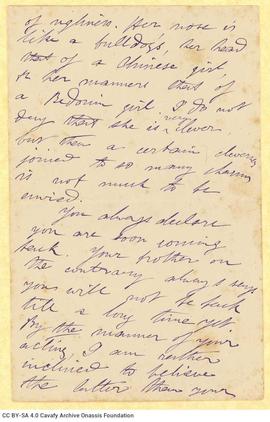 of ugliness. Her nose is
like a bulldog's, her head
that of a Chinese girl
& her manners that of
a Bedouin girl. I do not
very
deny that she is clever
but then a certain cleverness
joined to so many charms
is not much to be
envied.
You always declare
you are soon coming
back. Your brother on
the contrary always says
you will not be back
till a long time yet.
By the manner of your
acting, I am rather
inclined to believe
the latter than your
CC BY-SA 4.0 Cavafy Archive Onassis Foundation